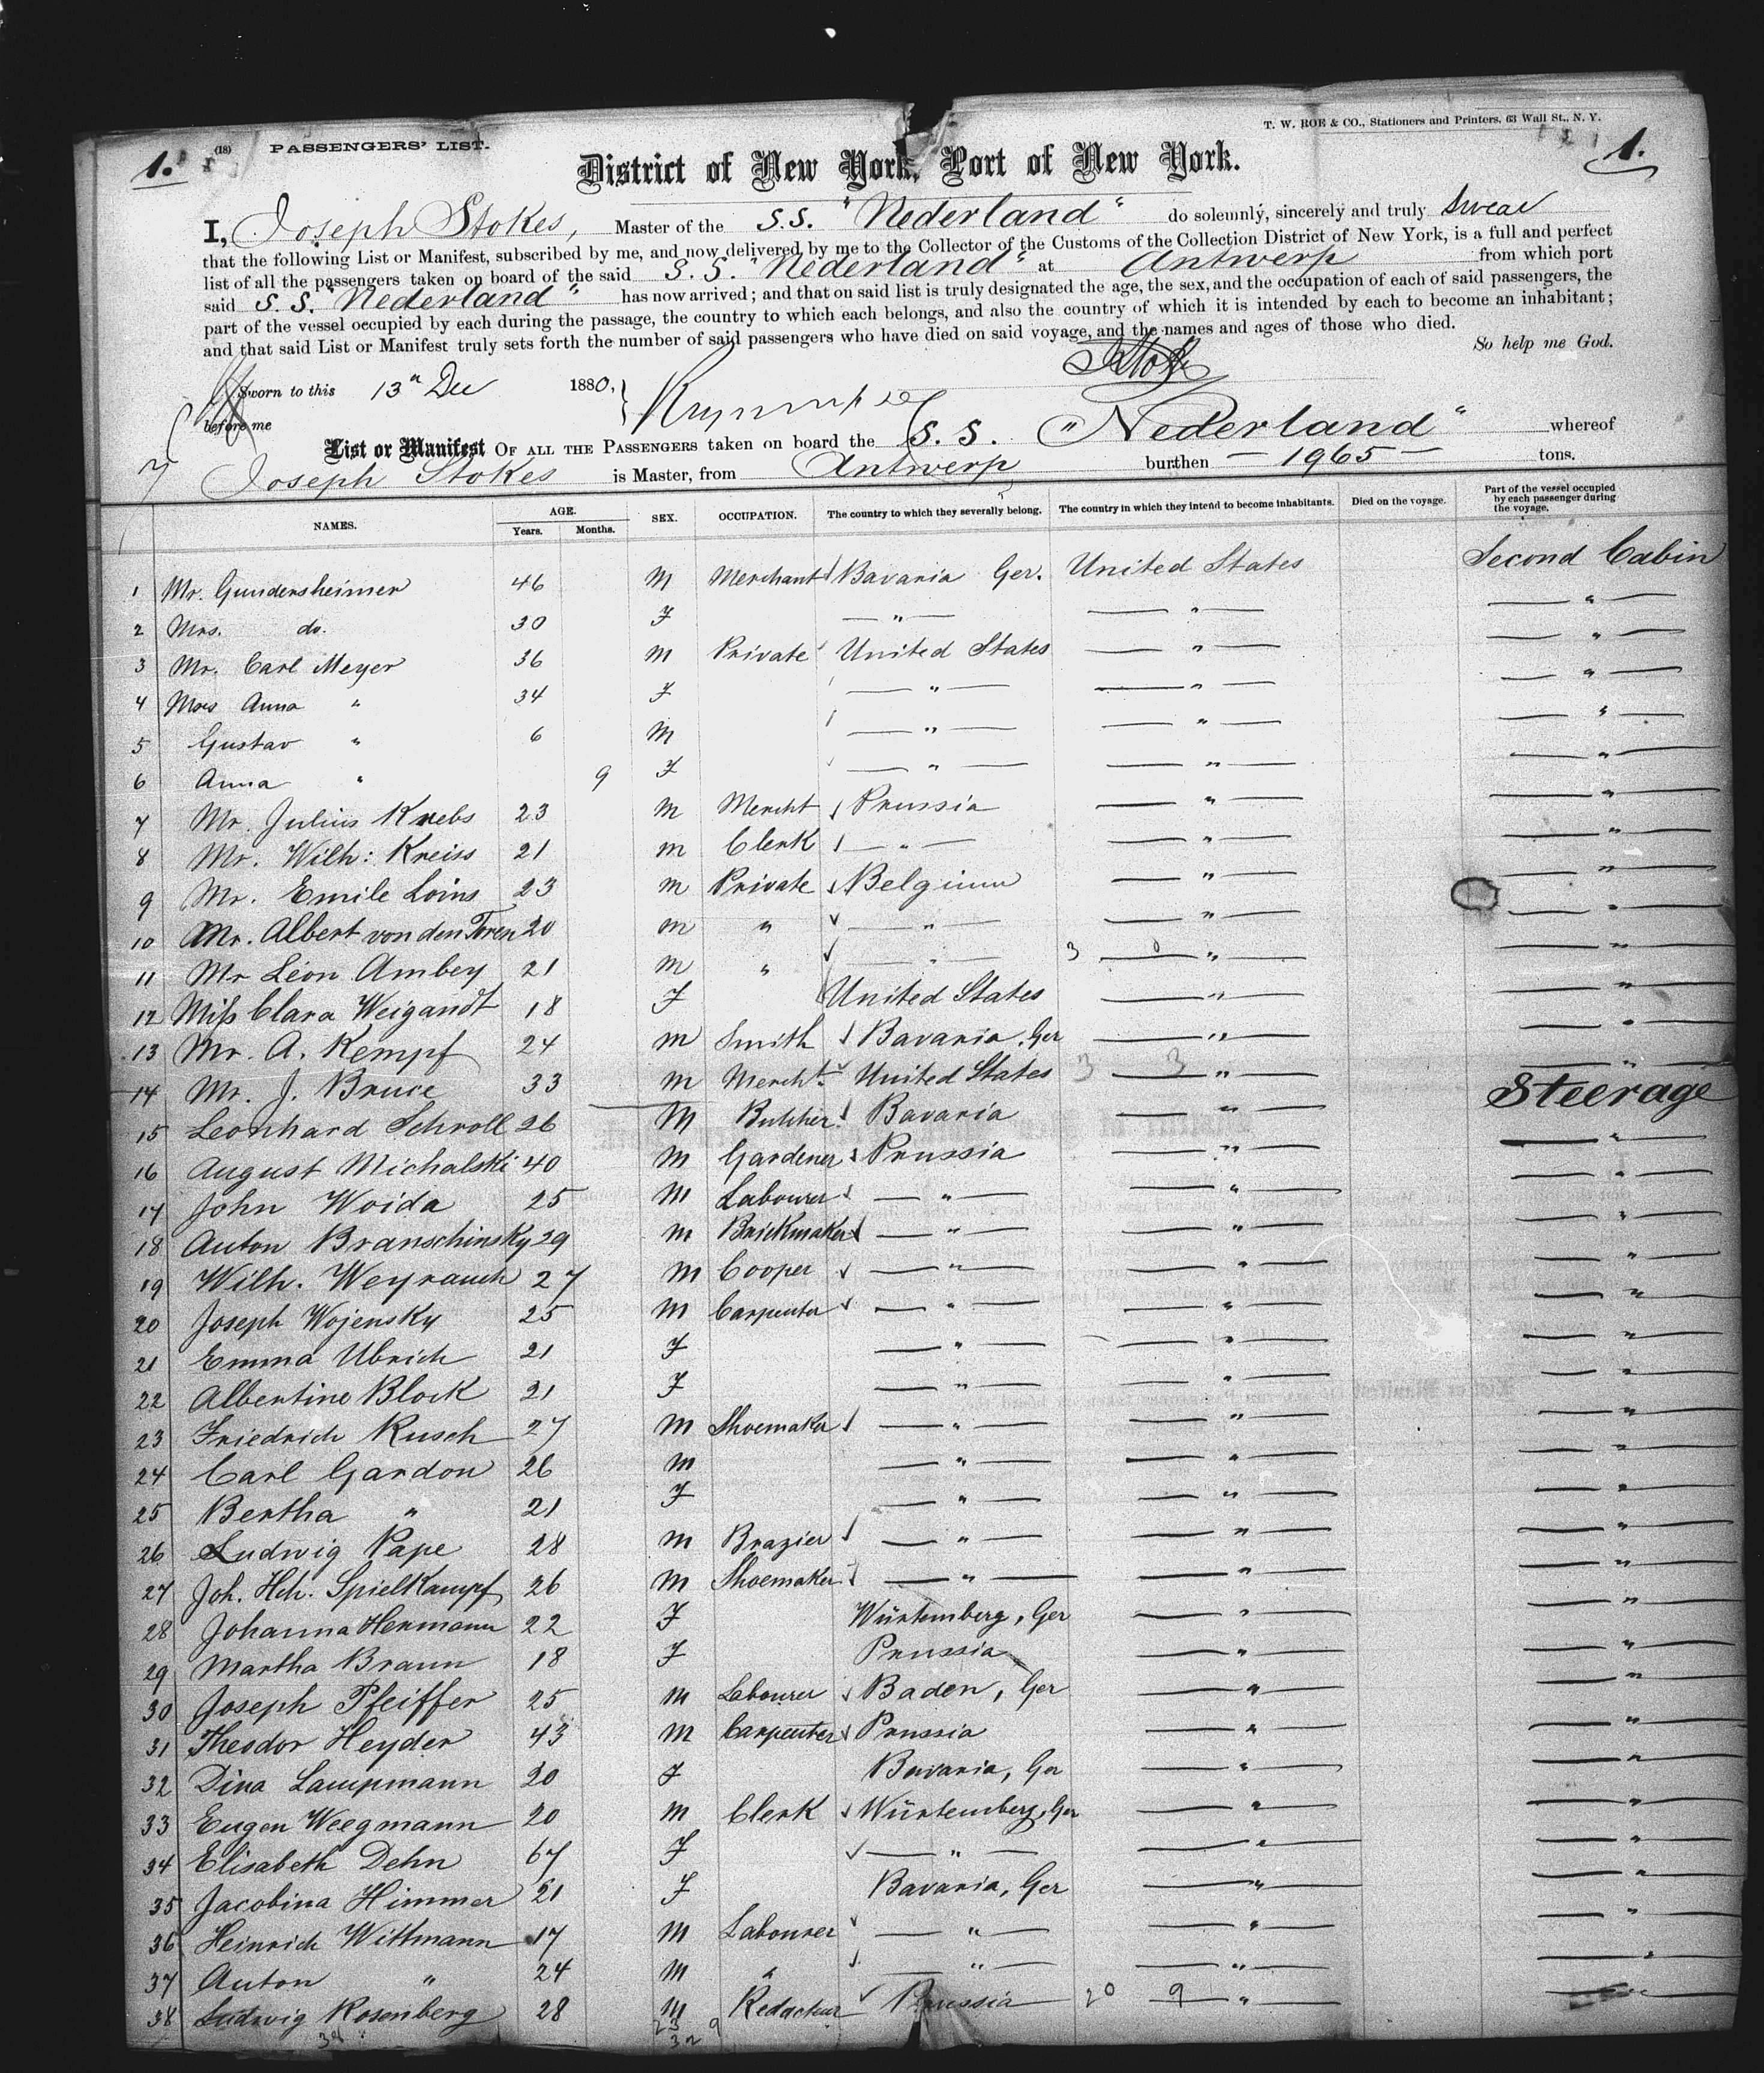 T. W. ROE & CO., Stationers and Printers, 63 Wall St., N. Y.
1. (18) PASSENGERS' LIST. 1.
District of New York, Port of New York.
I, Joseph Stokes, Master of the S.S. "Nederland" do solemnly, sincerely and truly swear
that the following List or Manifest, subscribed by me, and now delivered by me to the Collector of the Customs of the Collection District of New York, is a full and perfect
list of all the passengers taken on board of the said S.S. "Nederland" at Antwerp from which port
said S.S. "Nederland" has now arrived; and that on said list is truly designated the age, the sex, and the occupation of each of said passengers, the
part of the vessel occupied by each during the passage, the country to which each belongs, and also the country of which it is intended by each to become an inhabitant;
and that said List or Manifest truly sets forth the number of said passengers who have died on said voyage, and the names and ages of those who died.
So help me God.
Sworn to this 13th Dec 1880,
before me
List or Manifest OF ALL THE PASSENGERS taken on board the S. S. "Nederland" whereof
Joseph Stokes is Master, from Antwerp burthen — 1965 — tons.
NAMES. AGE. Years. Months. SEX. OCCUPATION. The country to which they severally belong. The country in which they intend to become inhabitants. Died on the voyage. Part of the vessel occupied by each passenger during the voyage.
1 Mr. Gundersheimer 46 M Merchant Bavaria Ger. United States Second Cabin
2 Mrs. do. 30 F — " — — " — — " —
3 Mr. Carl Meyer 36 M Private United States — " — — " —
4 Mrs Anna " 34 F — " — — " — — " —
5 Gustav " 6 M — " — — " — — " —
6 Anna " 9 F — " — — " — — " —
7 Mr. Julius Krebs 23 M Mercht Prussia — " — — " —
8 Mr. Wilh: Kreiss 21 M Clerk — " — — " — — " —
9 Mr. Emile Loins 23 M Private Belgium — " — — " —
10 Mr. Albert von den Toren 20 M " — " — — " — — " —
11 Mr Léon Ambey 21 M " — " — 3 0 — " — — " —
12 Miss Clara Weigandt 18 F United States — " — — " —
13 Mr. A. Kempf 24 M Smith Bavaria, Ger — " — — " —
14 Mr. J. Bruce 33 M Mercht. United States 3 3 — " — — " —
15 Leonhard Schroll 26 M Butcher Bavaria — " — Steerage
16 August Michalski 40 M Gardener Prussia — " — — " —
17 John Woida 25 M Labourer — " — — " — — " —
18 Anton Branschinsky 29 M Brickmaker — " — — " — — " —
19 Wilh. Weyrauch 27 M Cooper — " — — " — — " —
20 Joseph Wojensky 25 M Carpenter — " — — " — — " —
21 Emma Ubrich 21 F — " — — " — — " —
22 Albertine Block 21 F — " — — " — — " —
23 Friedrich Rusch 27 M Shoemaker — " — — " — — " —
24 Carl Gardon 26 M — " — — " — — " —
25 Bertha " 21 F — " — — " — — " —
26 Ludwig Pape 28 M Brazier — " — — " — — " —
27 Joh. Hch. Spielkampf 26 M Shoemaker — " — — " — — " —
28 Johanna Hermann 22 F Würtemberg, Ger — " — — " —
29 Martha Braun 18 F Prussia — " — — " —
30 Joseph Pfeiffer 25 M Labourer Baden, Ger — " — — " —
31 Theodor Heyder 43 M Carpenter Prussia — " — — " —
32 Dina Lampmann 20 F Bavaria, Ger — " — — " —
33 Eugen Weegmann 20 M Clerk Würtemberg, Ger — " — — " —
34 Elisabeth Dehn 67 F — " — — " — — " —
35 Jacobina Himmer 21 F Bavaria, Ger — " — — " —
36 Heinrich Wittmann 17 M Labourer — " — — " — — " —
37 Anton " 24 M " — " — — " — — " —
38 Ludwig Rosenberg 28 M Redacteur Prussia 20 9 — " — — " —
38 23 9
32